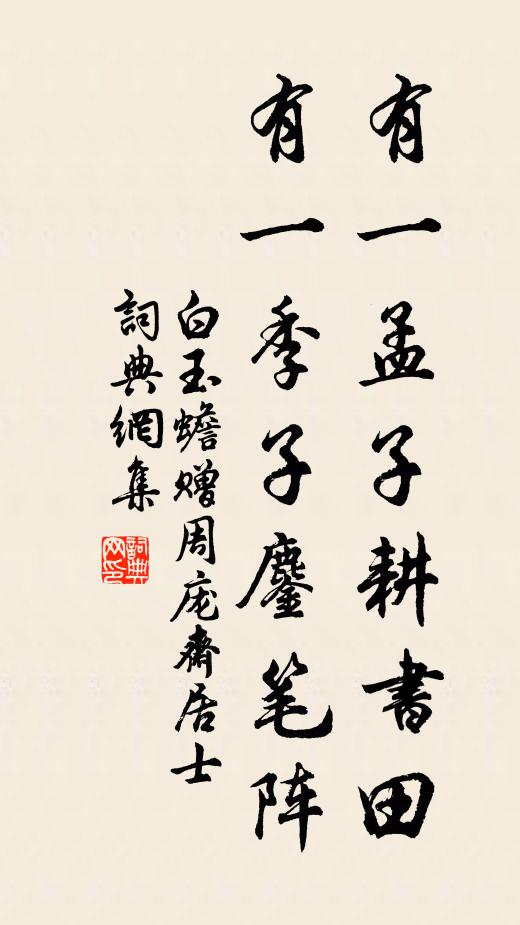 有一孟子耕書田
有一季子鏖笔阵
白玉蟾赠周庞齋居士
詞典網集
詞典网印